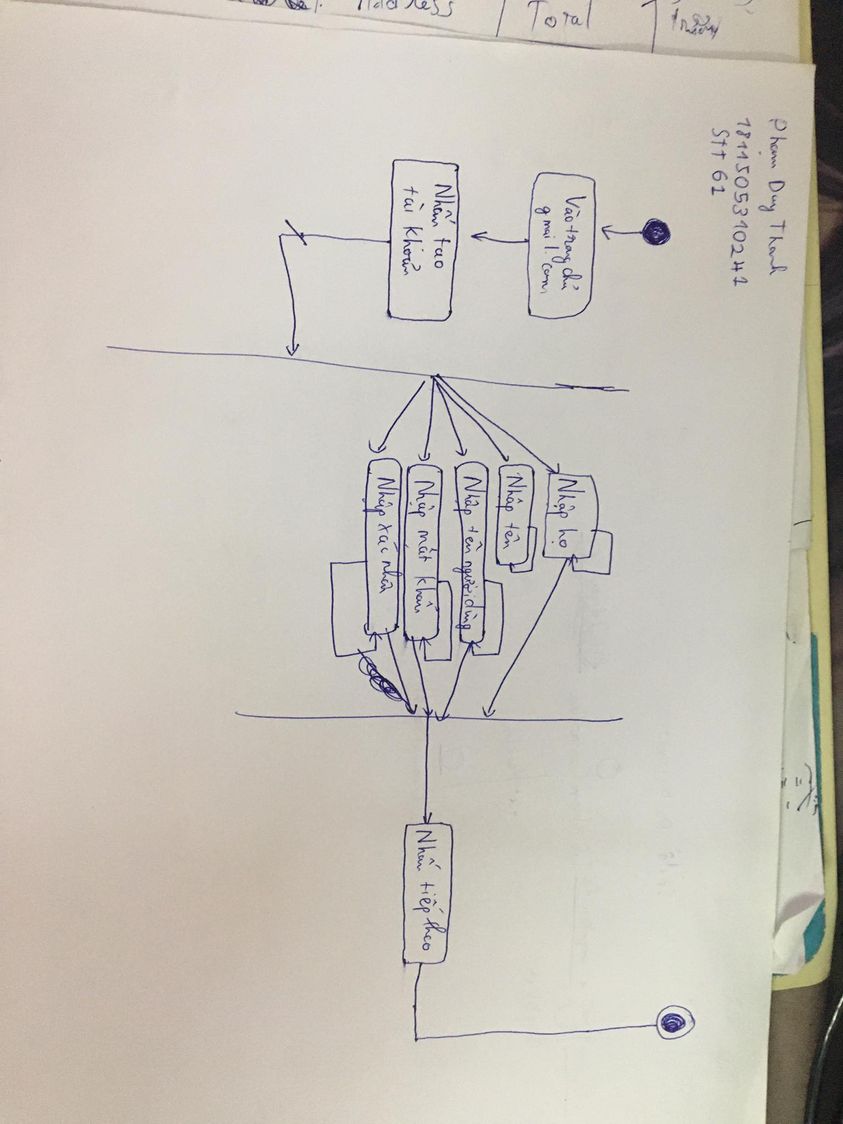 Address
Total
Phạm Duy Thanh
1811505310241
Stt 61
Vào trang chủ
gmail.com
Nhấn tạo
tài khoản
Nhập họ
Nhập tên
Nhập tên người dùng
Nhập mật khẩu
Nhập xác nhận
Nhấn tiếp theo